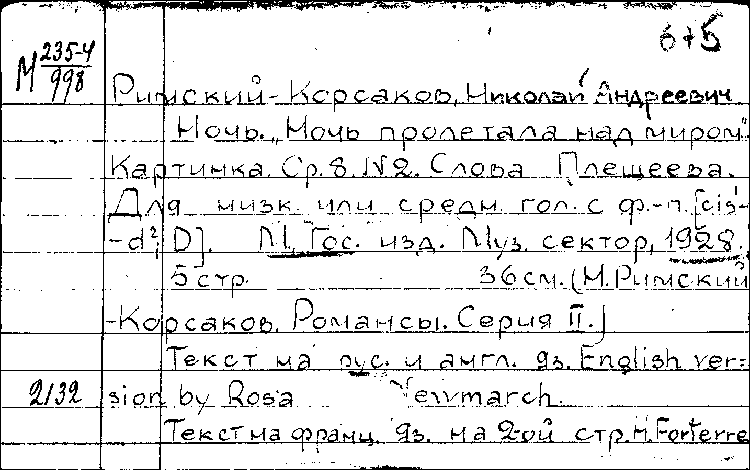 6+5
М 235-4
998
Римский-Корсаков, Николай Андреевич
Ночь. „Ночь пролетала над миром"
Картинка. Ср. 8. N2. Слова Плещеева.
Для низк. или средн. гол. с ф.-п. [cis¹-
-d², D]. М., Гос. изд. Муз. сектор, 1928.
5 стр. 36 см. (Н. Римский
-Корсаков. Романсы. Серия II.)
Текст на рус. и англ. яз. English ver-
2132 sion by Rosa Newmarch.
Текст на франц. яз. на 2-ой стр. H. Forterre